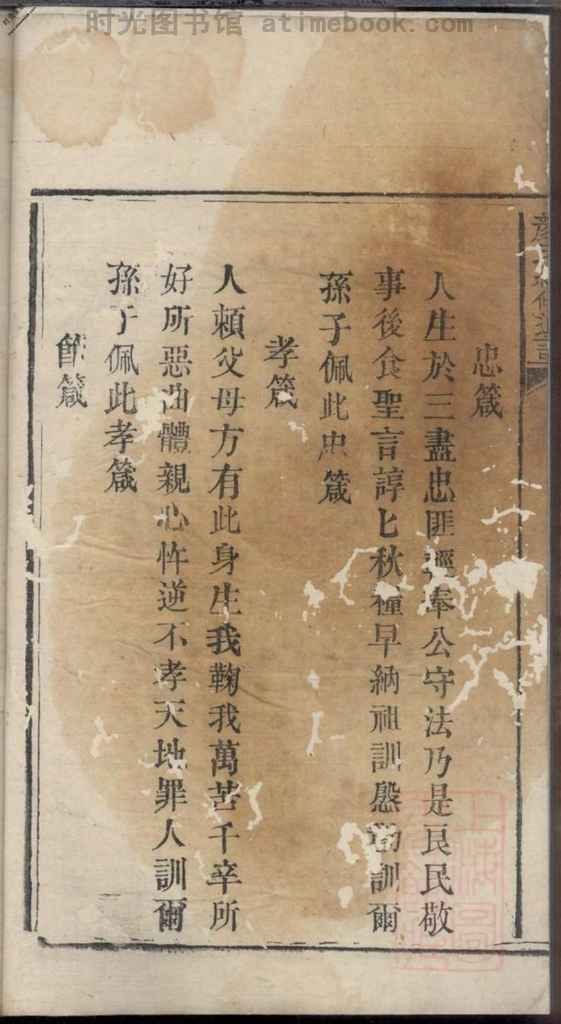 时光图书馆 atimebook.com
忠箴
人生於三盡忠匪輕奉公守法乃是良民敬
事後食聖言諄匕秋糧早納祖訓慇懃訓爾
孫子佩此忠箴
孝箴
人賴父母方有此身生我鞠我萬苦千辛所
好所惡曲體親心忤逆不孝天地罪人訓爾
孫子佩此孝箴
節箴